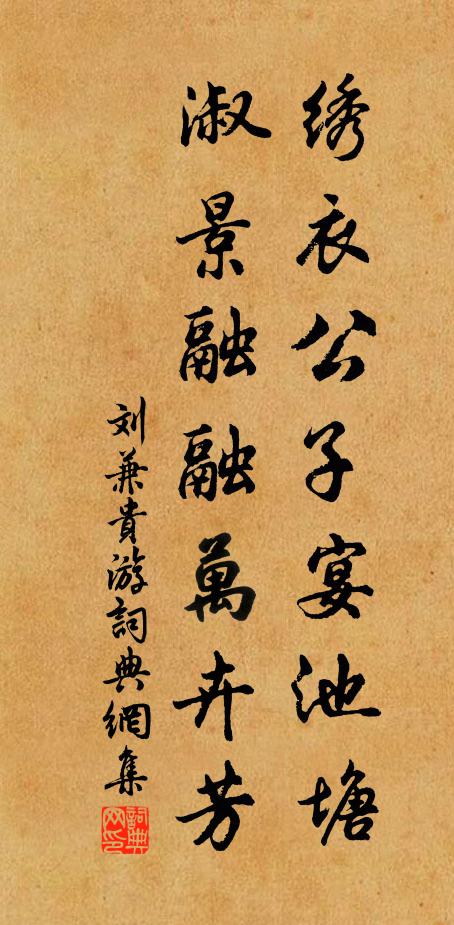 绣衣公子宴池塘
淑景融融萬卉芳
刘兼貴游詞典網集
詞典网印